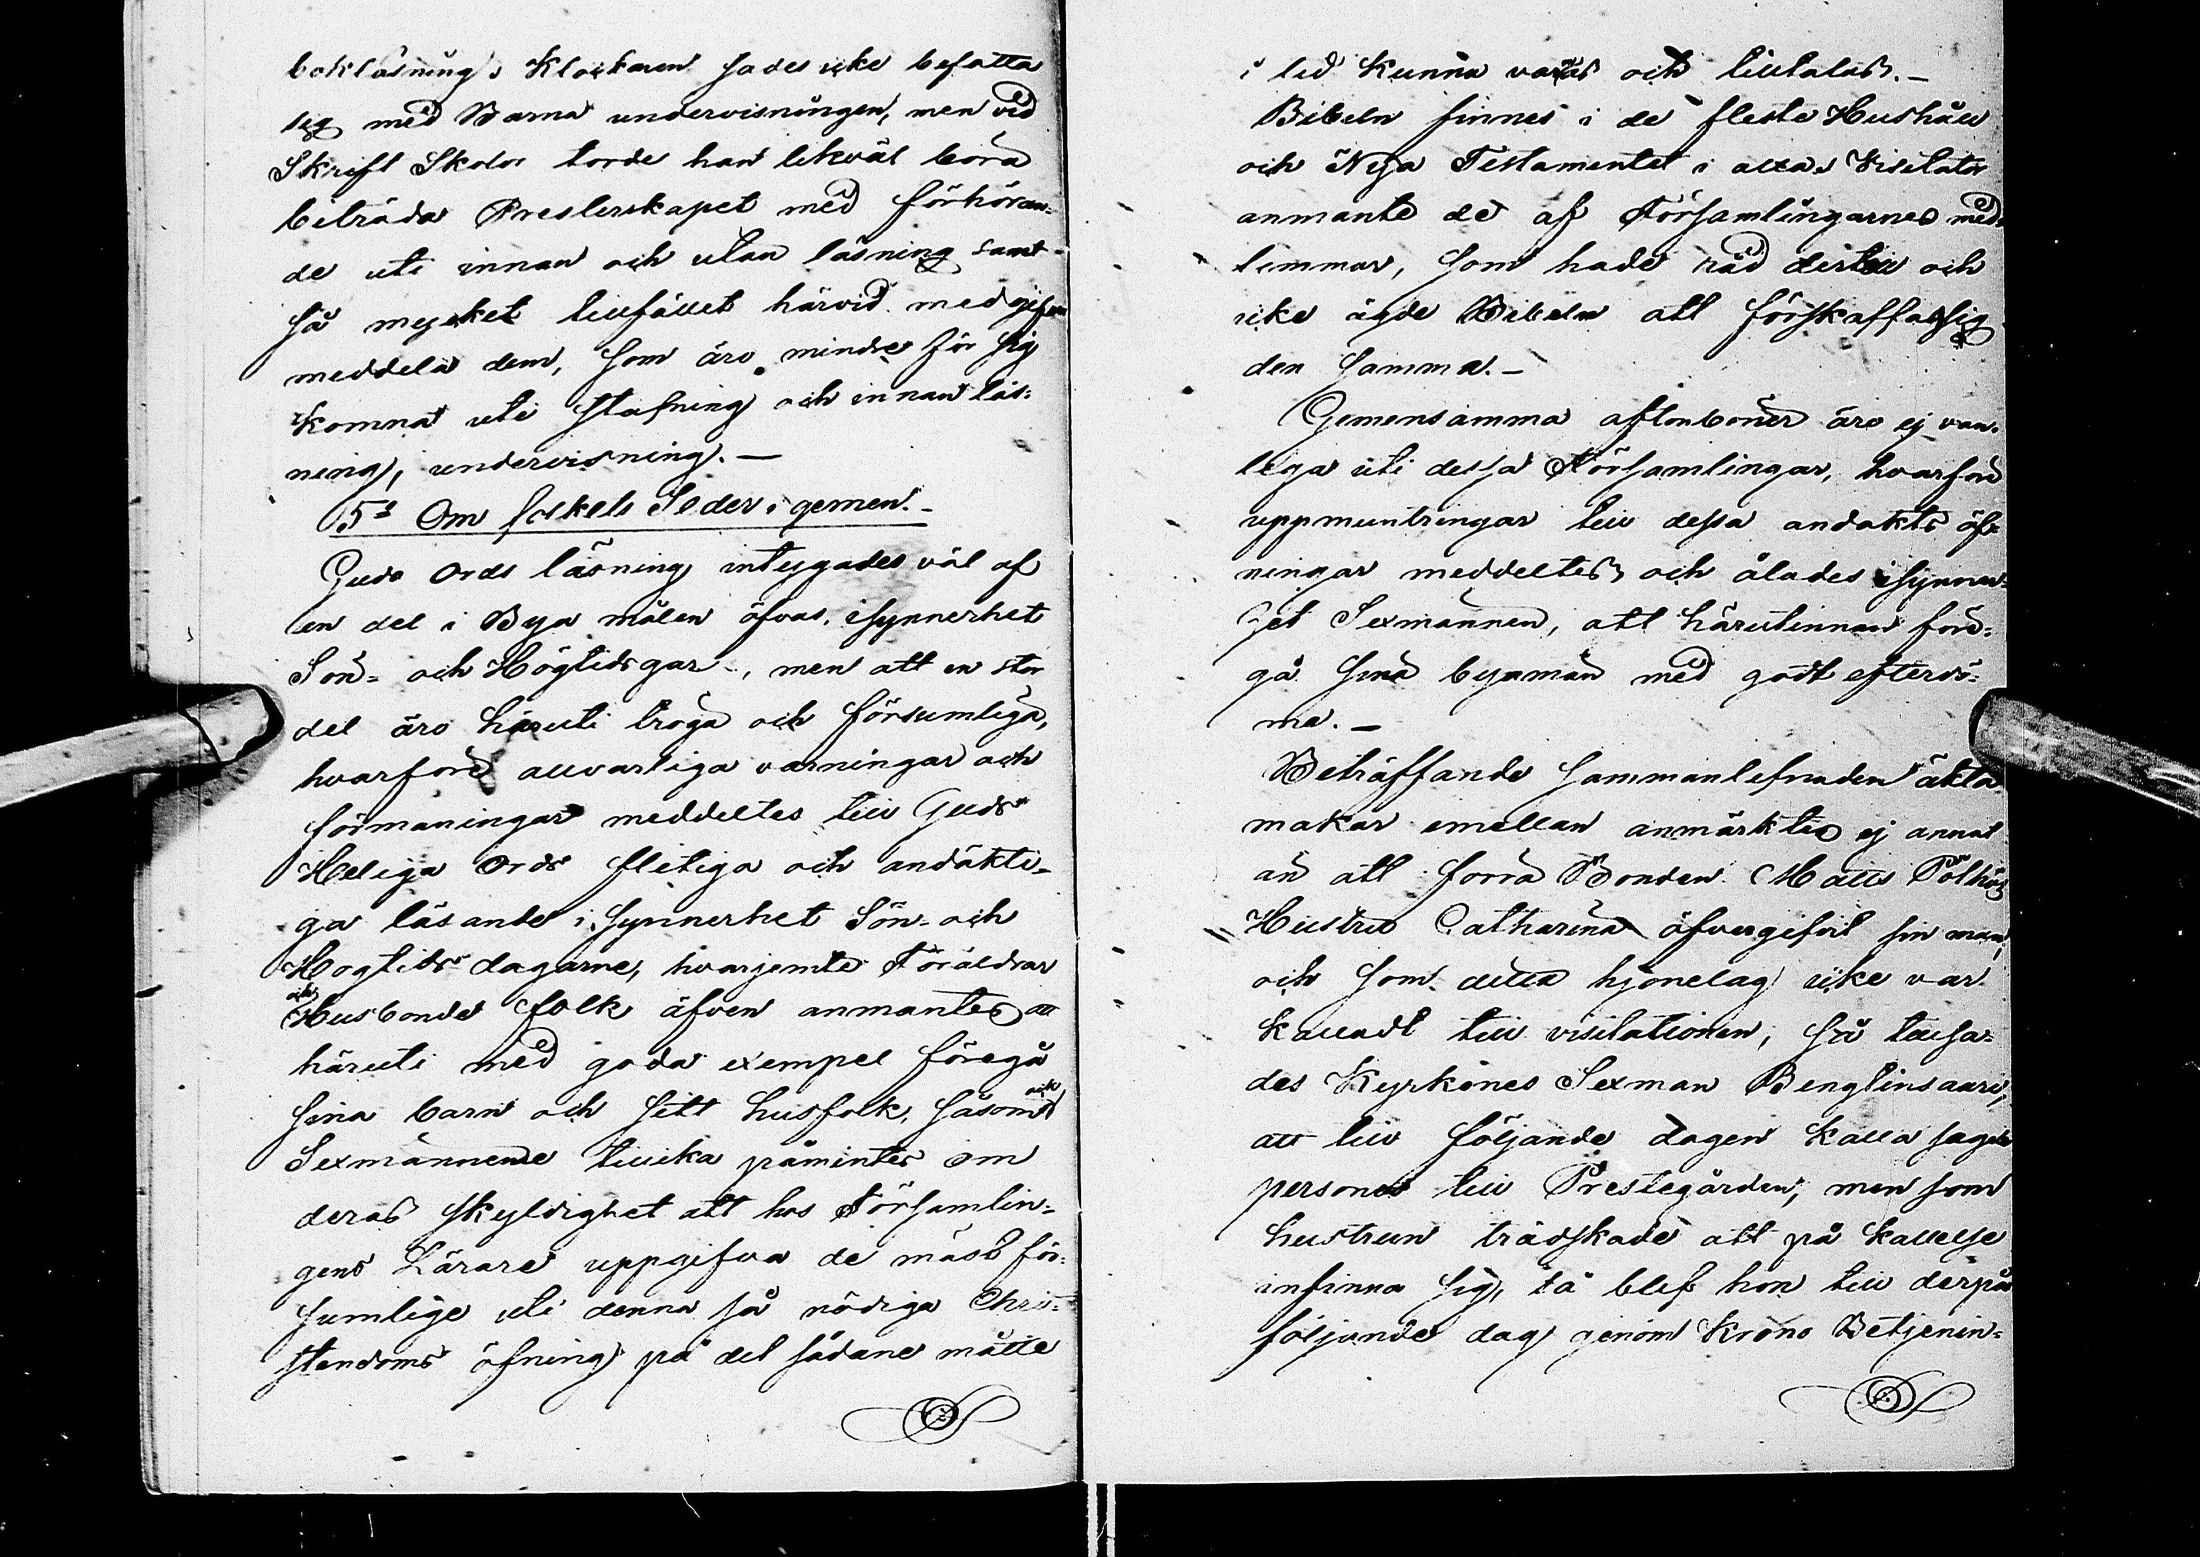 bokläsning. Klockaren sades icke befatta
sig med Barna undervisningen, men vid
Skrift Skolor torde han likväl böra
biträda Presterskapet med förhöran-
de uti innan och utan läsning samt
så mycket tillfället härvid medgifva
meddela dem, som äro mindre för sig
komna uti stafning och innan läs-
ning, undervisning. —
5:s Om folkets Seder i gemen. -
Guds Ords läsning intygades väl af
en del i Bya målen öfvas, isynnerhet
Sön- och Högtidsgar, men att en stor
del äro häruti tröga och försumliga,
hvarföre allvarliga varningar och
förmaningar meddeltes till Guds
Heliga Ords flitiga och andäkti-
ga läsande i synnerhet Sön- och
Hogtids dagarne, hvarjemte Föräldrar
och Husbonde folk äfven anmantes att
häruti med goda exempel föregå
sina barn och sitt husfolk, såsom och
Sexmännerne tillika påmintes om
deras skyldighet att hos Församlin-
gens Lärare uppgifva de mäst för-
sumlige uti denna så nödiga Chri-
stendoms öfning på det sådane måtte
i tid kunna varas och tilltalas. -
Bibeln finnes i de fleste Hushåll
och Nya Testamentet i alla. Visitator
anmante de af Församlingarnes med-
lemmar, som hade råd dertill och
icke ägde Bibeln att förskaffa sig
den samma. -
Gemensamma aftonböner äro ej van-
liga uti dessa Församlingar, hvarföre
uppmuntringar till dessa andakts öf-
ningar meddeltes och ålades isynner-
het Sexmännen, att härutinnan före-
gå sina byamän med godt efterdö-
me. -
Beträffande sammanlefnaden äkta
makar emellan anmärktes ej annat
än att förra Bonden Matts Pölhös
Hustru Catharina öfvergifvit sin man,
och som detta hjonelag icke var
kalladt till visitationen, så tillsa-
des Kyrkönes Sexman Bengtinsaari,
att till följande dagen kalla sagde
personer till Prestegården, men som
hustrun trädskade att på kallelse
infinna sig, så blef hon till derpå
följande dag genom Krono Betjenin-